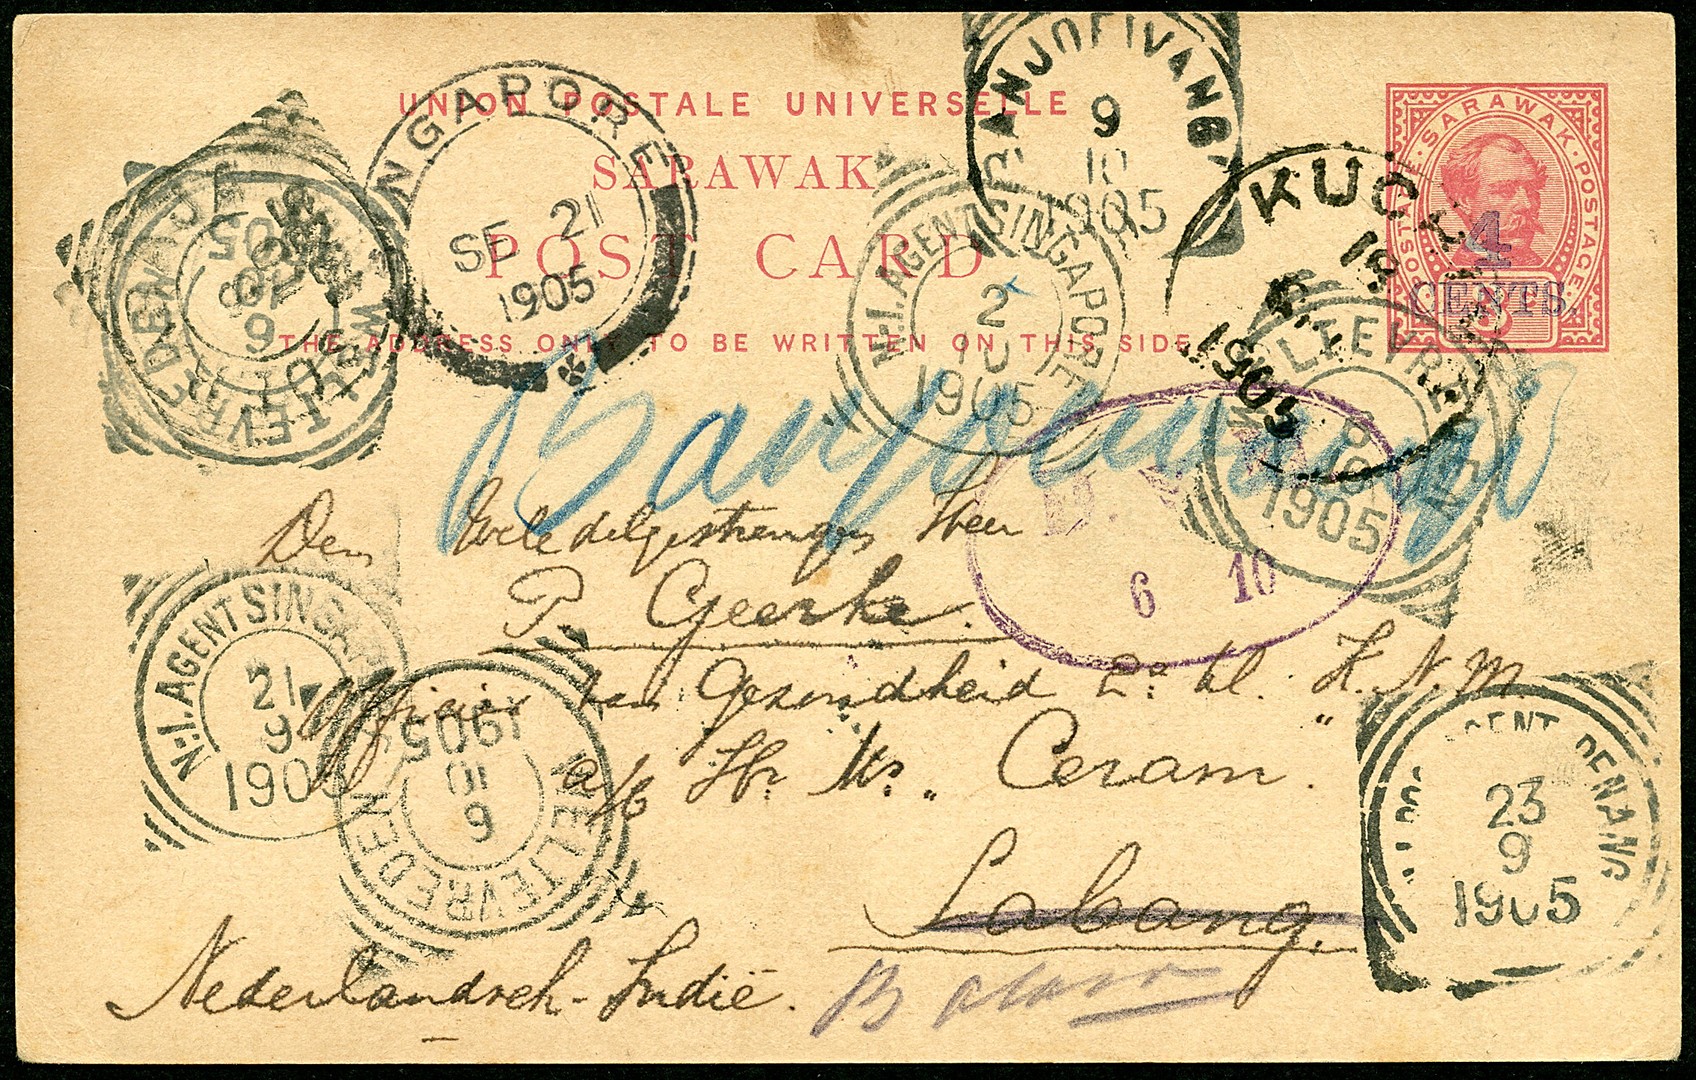 UNION POSTALE UNIVERSELLE
SARAWAK
POST CARD
THE ADDRESS ONLY TO BE WRITTEN ON THIS SIDE
SARAWAK
POSTAGE. POSTAGE.
4
CENTS.
SINGAPORE
SE 21
1905
BANJOEIWANGI
9
10
1905
KUCH
19
1905
N:I.AGENTSINGAPORE
2
10
1905
WELTEVREDEN
8
10
1905
6 10
N:I.AGENTSINGAPORE
21
9
1905
WELTEVREDEN
9
10
1905
AGENT PENANG
23
9
1905
WELTEVREDEN
Den Weledelgestrengen Heer
P. Geerke.
Officier van Gezondheid 2e kl. K.N.M
a/b Hr Ms. „Ceram".
Sabang.
Nederlandsch-Indië.